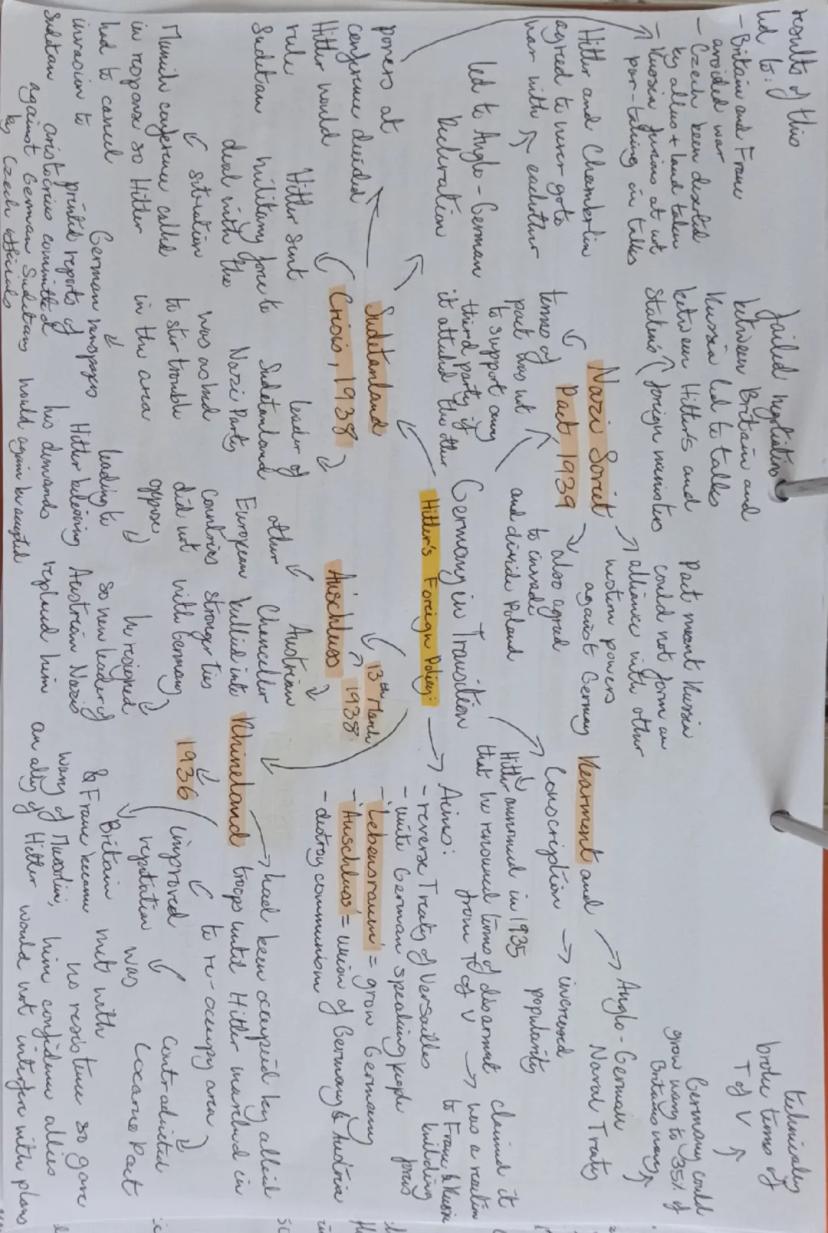 Hitler's Foreign Policy:
Germany in Transition
Aims:
- reverse Treaty of Versailles
- unite German speaking people
- 'Lebensraum' = grow Germany
- 'Auschluss' = union of Germany & Austria
- destroy communism
Rearment and
Conscription
increased
popularity
Hitler announced in 1935
that he renounced terms of disarmat
from T of V
claimed it
was a reaction
to France & Russia
building
Anglo-German
Naval Treaty
Germany could
grow navy to 35% of
Britains navy
technically
broke terms of
T of V
Rhineland
1936
had been occupied by allied
troops until Hitler marched in
to re-occupy area
contradicted
Locarno Pact
improved
reputation
was
met with
no resistence so gave
him confidence allies
would not interfere with plans
Britain
& France became
wary of Mussolini,
an ally of Hitler
Auschluss
13th March
1938
Austrian
Chancellor
bullied into
stronger ties
with Germany
he resigned
so new leader of
Austrian Nazis
replaced him
other
European
countries
did not
oppose
leading to
Hitler believing
his demands
would again be accepted
Sudetanland
Crisis, 1938
leader of
Sudetanland
Nazi Party
was asked
to stir trouble
in the area
German newspapers
printed reports of
atrocities committed
against German Sudetans
by Czech officials
Hitler sent
military force to
deal with the
situation
Munich conference called
in response so Hitler
had to cancel
invasion to
Sudetan
powers at
conference decided
Hitler would
rule
Sudetan
led to Anglo-German
Declaration
Hitler and Chamberlin
agreed to never go to
war with eachother
results of this
led to:
- Britain and France
avoided war
- Czech been deserted
by allies + land taken
- Russia furious at not
par-taking in talks
Nazi Soviet
Pact 1939
failed negotiation
between Britain and
Russia led to talks
between Hitler's and
Stalin's foreign ministers
Pact meant Russia
could not form an
alliance with other
western powers
against Germany
terms of
pact was not
to support any
third party if
it attacked the other
also agreed
to invade
and divide Poland